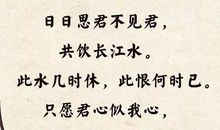 日日思君不见君，
共饮长江水。
此水几时休，此恨何时已。
只愿君心似我心，